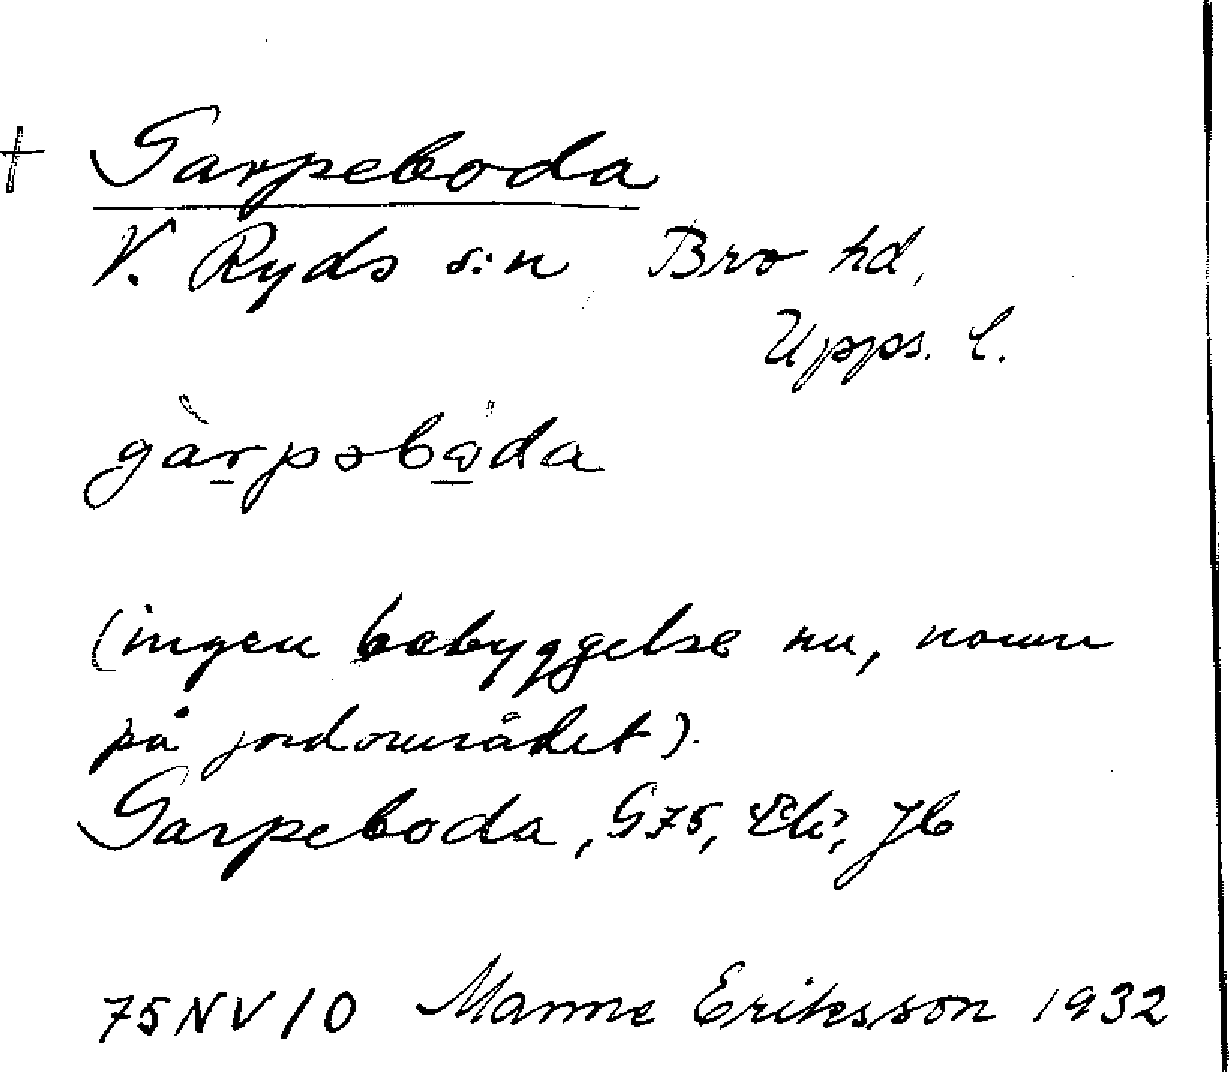 + Garpeboda
V. Ryds s:n, Bro hd,
Upps. l.
gàrpəbo̱da
(ingen bebyggelse nu, namn
på jordområdet).
Garpeboda, G75, Jb
75NV10 Manne Eriksson 1932